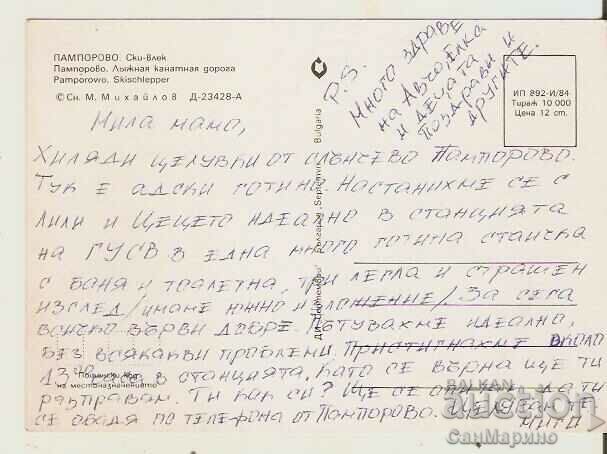 ПАМПОРОВО. Ски-влек
Пампорово. Лыжная канатная дорога
Pamporowo. Skischlepper
© Сн. М. Михайлов Д-23428-А
ДИ „Септември" България „Septemvri" Bulgaria
ИП 892-И/84
Тираж 10 000
Цена 12 ст.
P.S.
Много здраве
на Авчо, Елка
и децата
Поздрави и
другите.
Мила мамо,
Хиляди целувки от слънчево Пампорово.
Тук е адски готино. Настанихме се с
Лили и Цецето идеално в станцията
на ГУСВ в една много готина стаичка
с баня и тоалетна, три легла и страшен
изглед /имаме южно изложение/. За сега
всичко върви добре. Пътувахме идеално,
без всякакви проблеми. Пристигнахме около
13 часа в станцията. Като се върна ще ти
разправам. Ти как си? Ще се да ти
се обадя по телефона от Пампорово. Целувам те
Мити
на местоназначението
BALKAN
auction
СанМарино